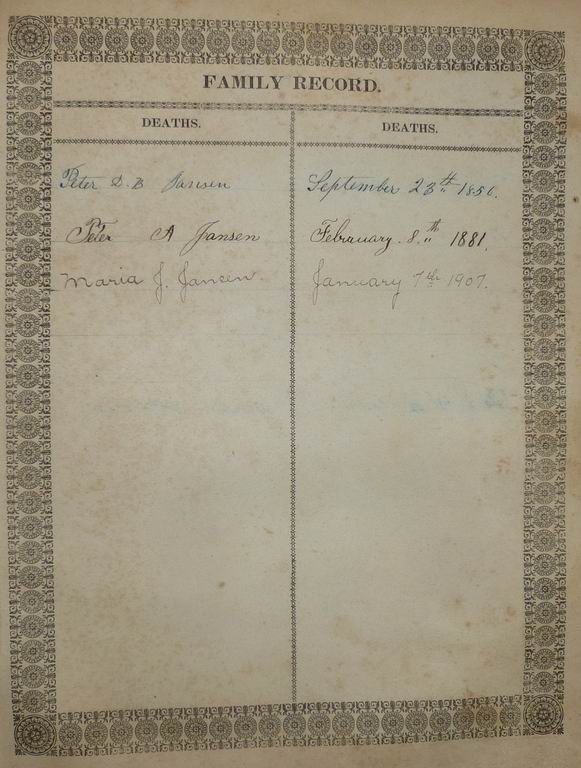 FAMILY RECORD.
DEATHS. DEATHS.
Peter D. B Jansen September 23th 1850.
Peter A Jansen February. 8.th 1881.
Maria J. Jansen. January 7th 1907.